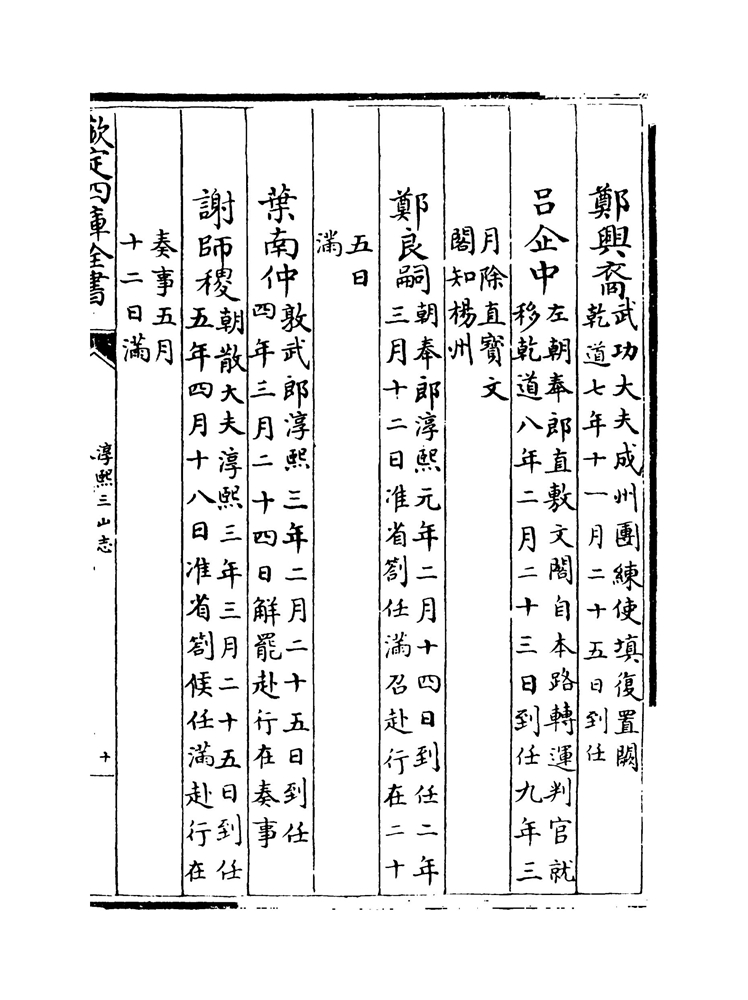 鄭興裔武功大夫成州團練使填復置闕
乾道七年十一月二十五日到任
呂企中左朝奉郎直敷文閣自本路轉運判官就
移乾道八年二月二十三日到任九年三
月除直寳文
閣知楊州
鄭良嗣朝奉郎淳熙元年二月十四日到任二年
三月十二日准省劄任滿召赴行在二十
五日
滿
葉南仲敦武郎淳熙三年二月二十五日到任
四年三月二十四日解罷赴行在奏事
謝師稷朝散大夫淳熙三年三月二十五日到任
五年四月十八日准省劄候任滿赴行在
奏事五月
十二日滿
欽定四庫全書
淳熙三山志
十